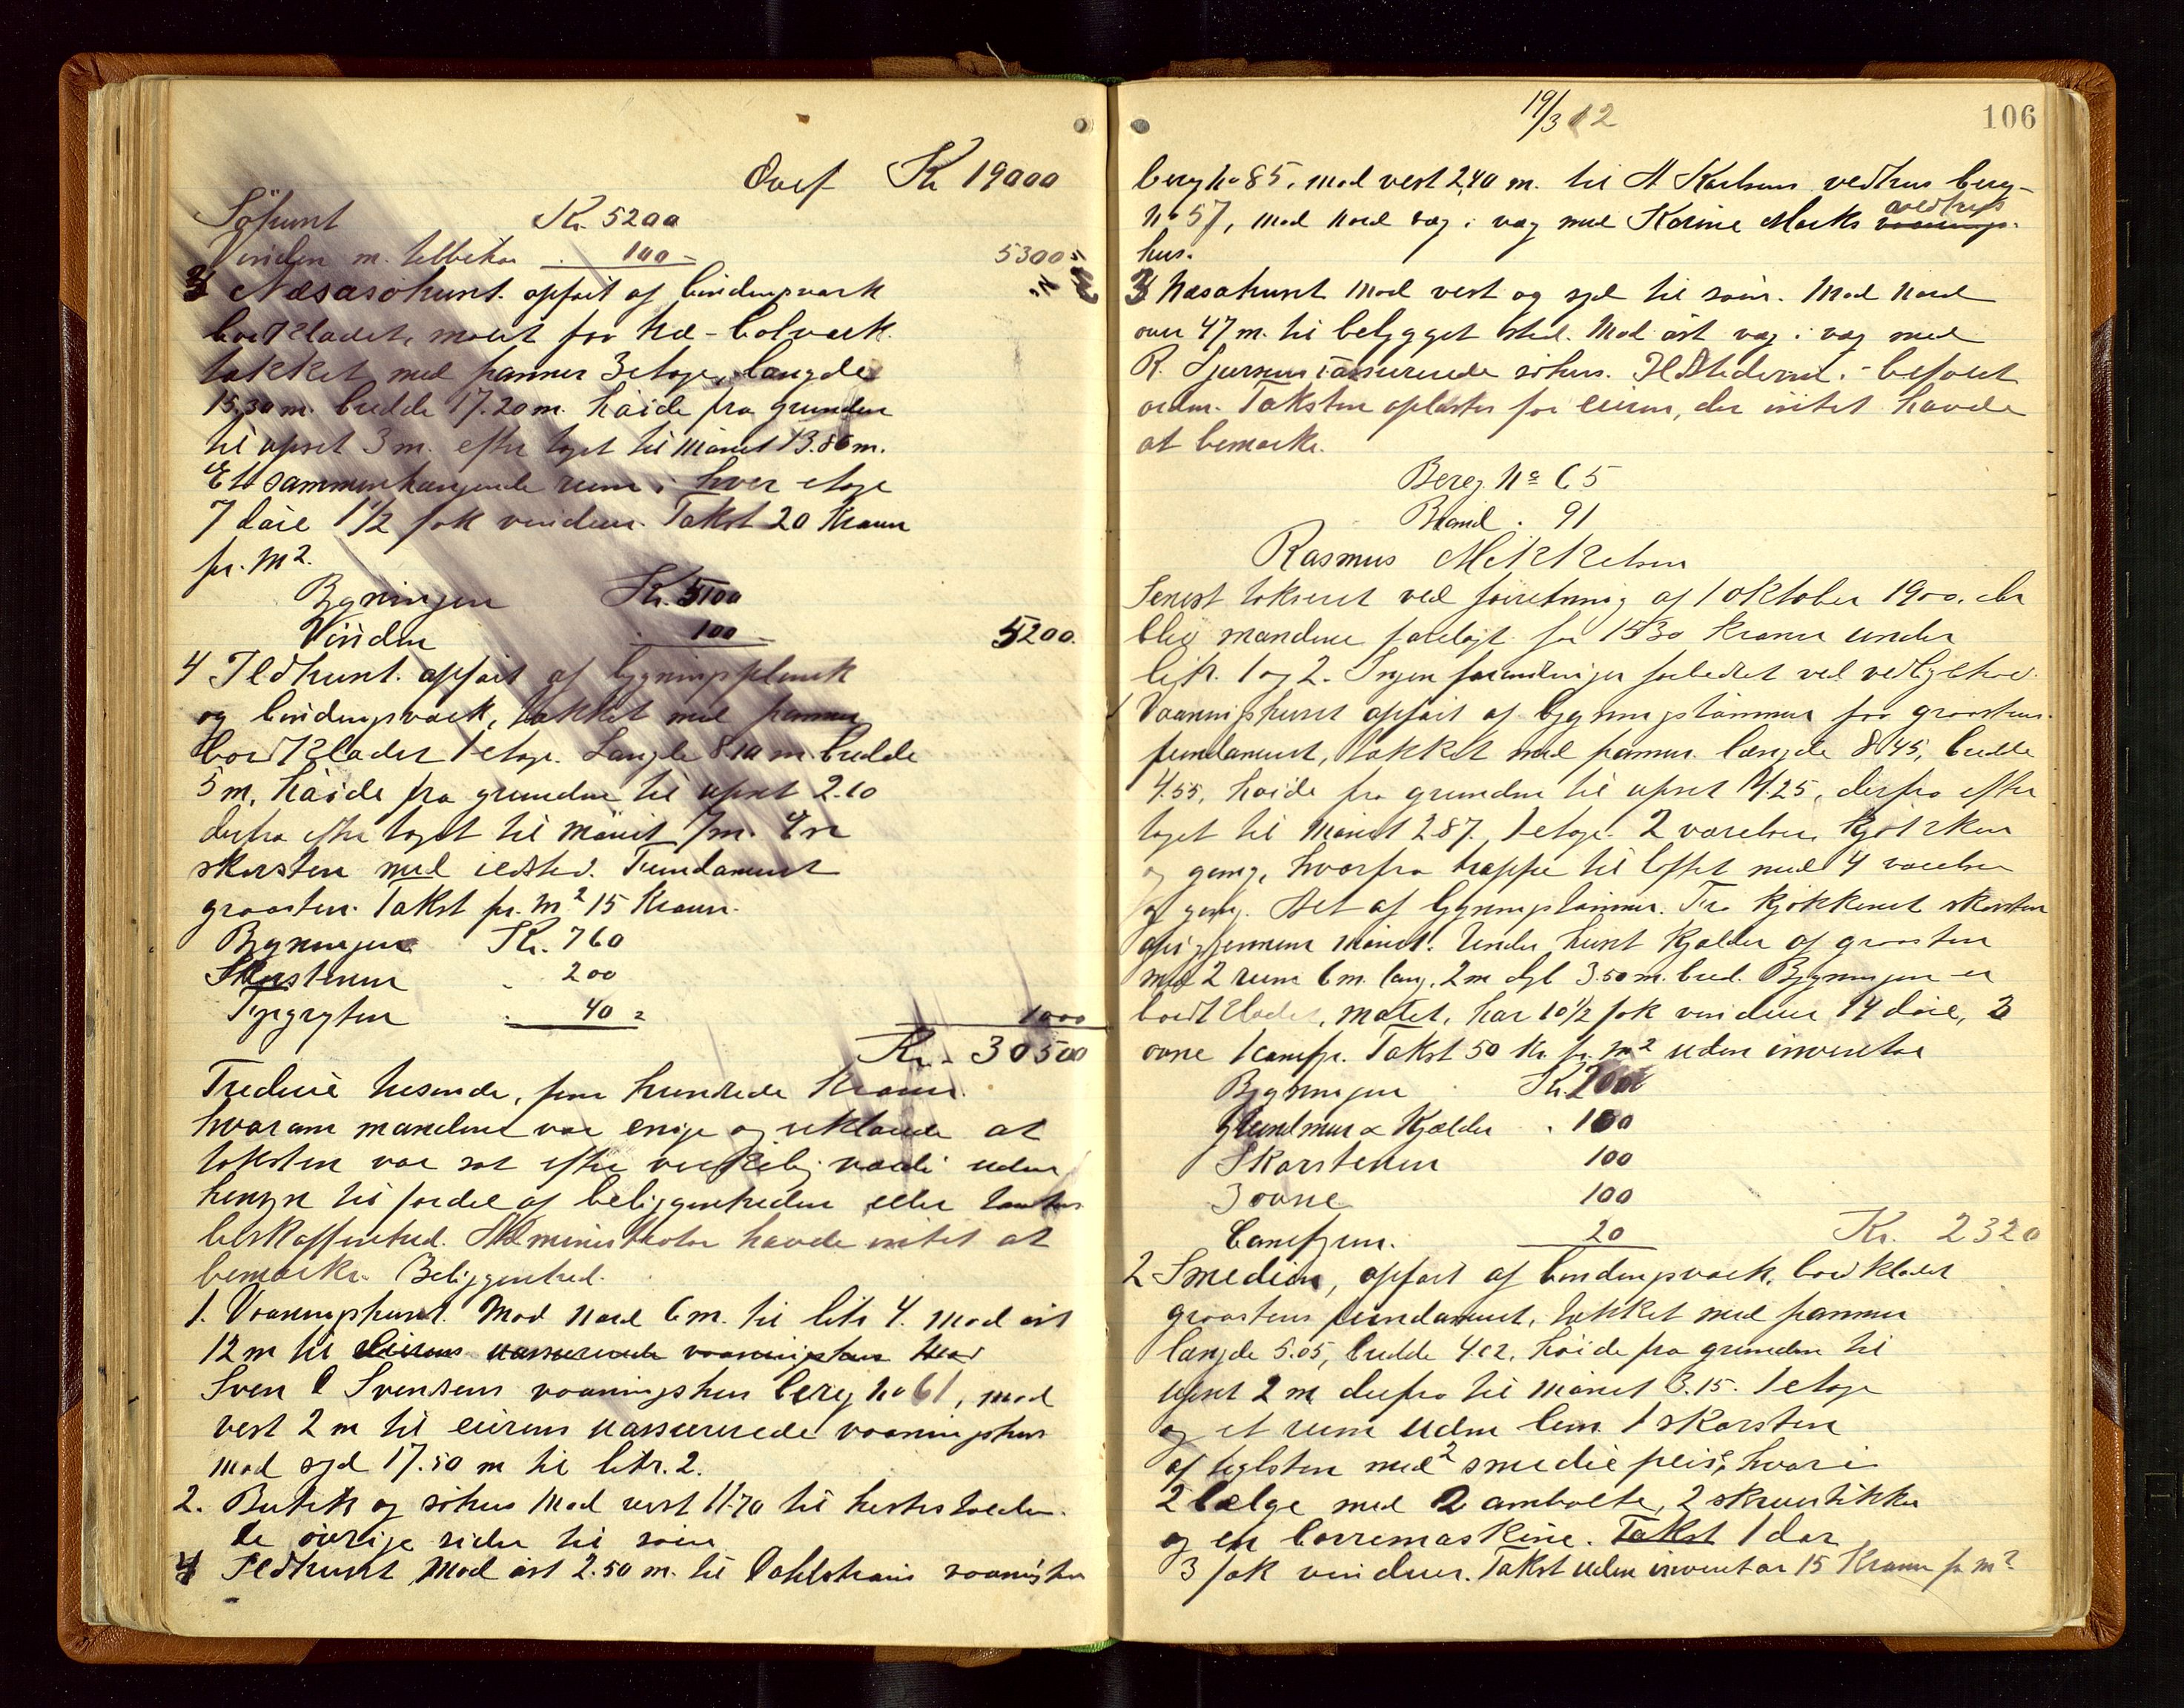 Overf Kr 19000
Söhuset Kr. 5200
Vinden m. tilbehør 100 = 5300
3 Næsasöhuset. opført af bindingsverk
bordklædet, malet paa træ-bolværk.
tækket med panner 3 etage, længde
15.30 m. bredde 17.20 m. høide fra grunden
til opset 3 m. efter taget til mönet 13.80 m.
Et sammenhængende rum i hver etage
7 döre 1 1/2 fak vinduer. Takst 20 Kroner
pr. m2.
Bygningen Kr. 5100
Vinden 100 5200.
4 Ildhuset. opført af bygningsplank
og bindingsværk, tækket med panner
bordklædet 1 etage. Længde 8.10 m. bredde
5 m, høide fra grunden til opset 2.10
derfra efter taget til mönet 7 m. En
skorsten med ildsted. Fundament
graasten. Takst pr. m2 15 Kroner.
Bygningen Kr. 760
Skorstenen 200
40 =
1000
Kr. 30500
Tredive tusende, fem hundrede kroner.
hvorom mændene var enige og erklærede at
taksten var sat efter virkelig værdi uden
hensyn til fordel af beliggenheden eller tomtens
beskaffenhed. Administrator havde intet at
bemærke. Beliggenhed.
1. Vaaningshuset. Mod nord 6 m. til litr 4. mod öst
12 m til eierens uassurerede vaaningshus
Sven Svensens vaaningshus berg no 61, mod
vest 2 m til eierens uassurerede vaaningshus
mod syd 17.50 m til litr. 2.
2. Butik og söhus Mod vest 11.70 til
de övrige sider til söen
4 Ildhuset Mod öst 2.50 m. til Dahlströms vaaningshus
19/3 12
106
berg no 85. mod vest 2,40 m. til A Karlsens vedhus berg-
no 57, mod nord væg i væg med Karine Marks vedhus vaanings-
hus.
3 Næsahuset mod vest og syd til söen. Mod nord
over 47 m. til bebygget sted. Mod öst væg i væg med
R. uassurerede söhus. Ildstederne - befalet
orden. Taksten oplæstes for eieren, der intet havde
at bemærke.
Bereg. No 65
Brand. 91
Rasmus Mikkelsen
Senest takseret ved forretning af 1 oktober 1900. der
blev mændene forelagt for 1530 kroner under
litr. 1 og 2. Ingen forandringer forbedret ved vedligehold.
1 Vaaningshuset opført af bygningstömmer paa graastens-
fundament, tækket med panner. længde 8.45, bredde
4.55, høide fra grunden til opset 4.25, derfra efter
taget til mönet 2.87. 1 etage. 2 værelser, kjökken
og gang, hvorfra trappe til loftet med 4 værelser
og gang. Alt af bygningstömmer. Fra kjökkenet skorsten
op igjennem mönet. Under huset kjelder af graasten
med 2 rum 6 m. lang, 2 m dyb 3.50 m. bred. Bygningen er
bordklædet, malet, har 10 1/2 fak vinduer 14 döre, 3
ovne 1 Takst 50 Kr pr. m2 uden inventar
Bygningen Kr. 2000
Grundmur & Kjelder 100
Skorstenen 100
3 ovne 100
20 Kr. 2320
2 Smedien, opført af bindingsværk, bordklædet
graastens fundament, tækket med panner
længde 5.05, bredde 4.02, høide fra grunden til
opset 2 m derfra til mönet 3.15. 1 etage
og et rum uden lem 1 skorsten
af teglsten med 2 smedie peise, hvori
2 belge med 2 ambolte, 2 skruestikker
og en borremaskine. Takst 1 dör
3 fak vinduer. Takst uden inventar 15 Kroner pr m2